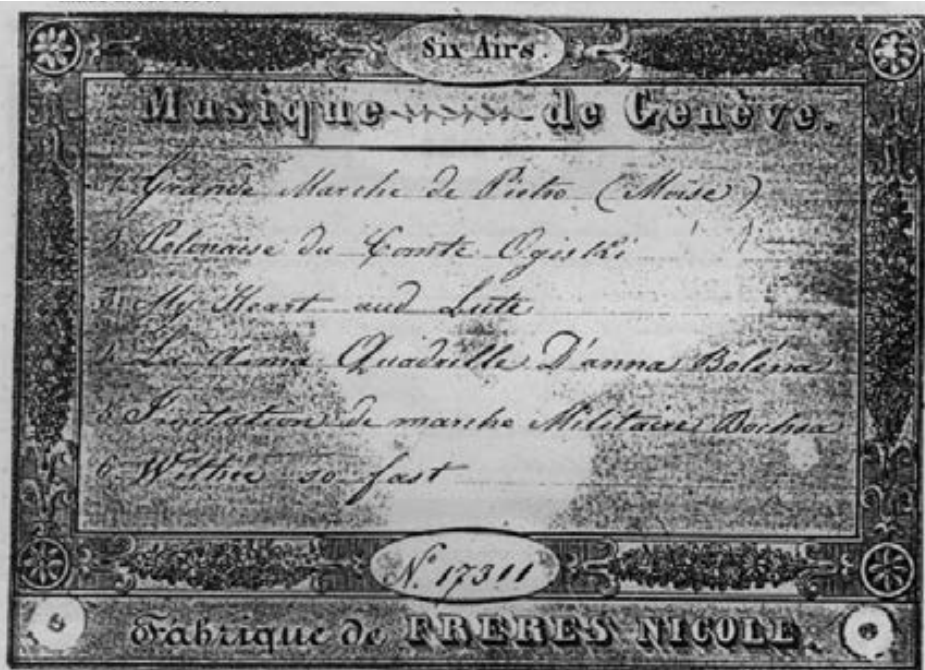 Six Airs.
Musique de Genève.
1. Grande Marche de Pietro (Moïse)
2. Polonaise du Comte Ogiski
3. My Heart and Lute
4. La Quadrille D'anna Boléna
5. Imitation de marche Militaire Bochsa
6. Wither so fast
N. 17311
Fabrique de FRERES NICOLE.